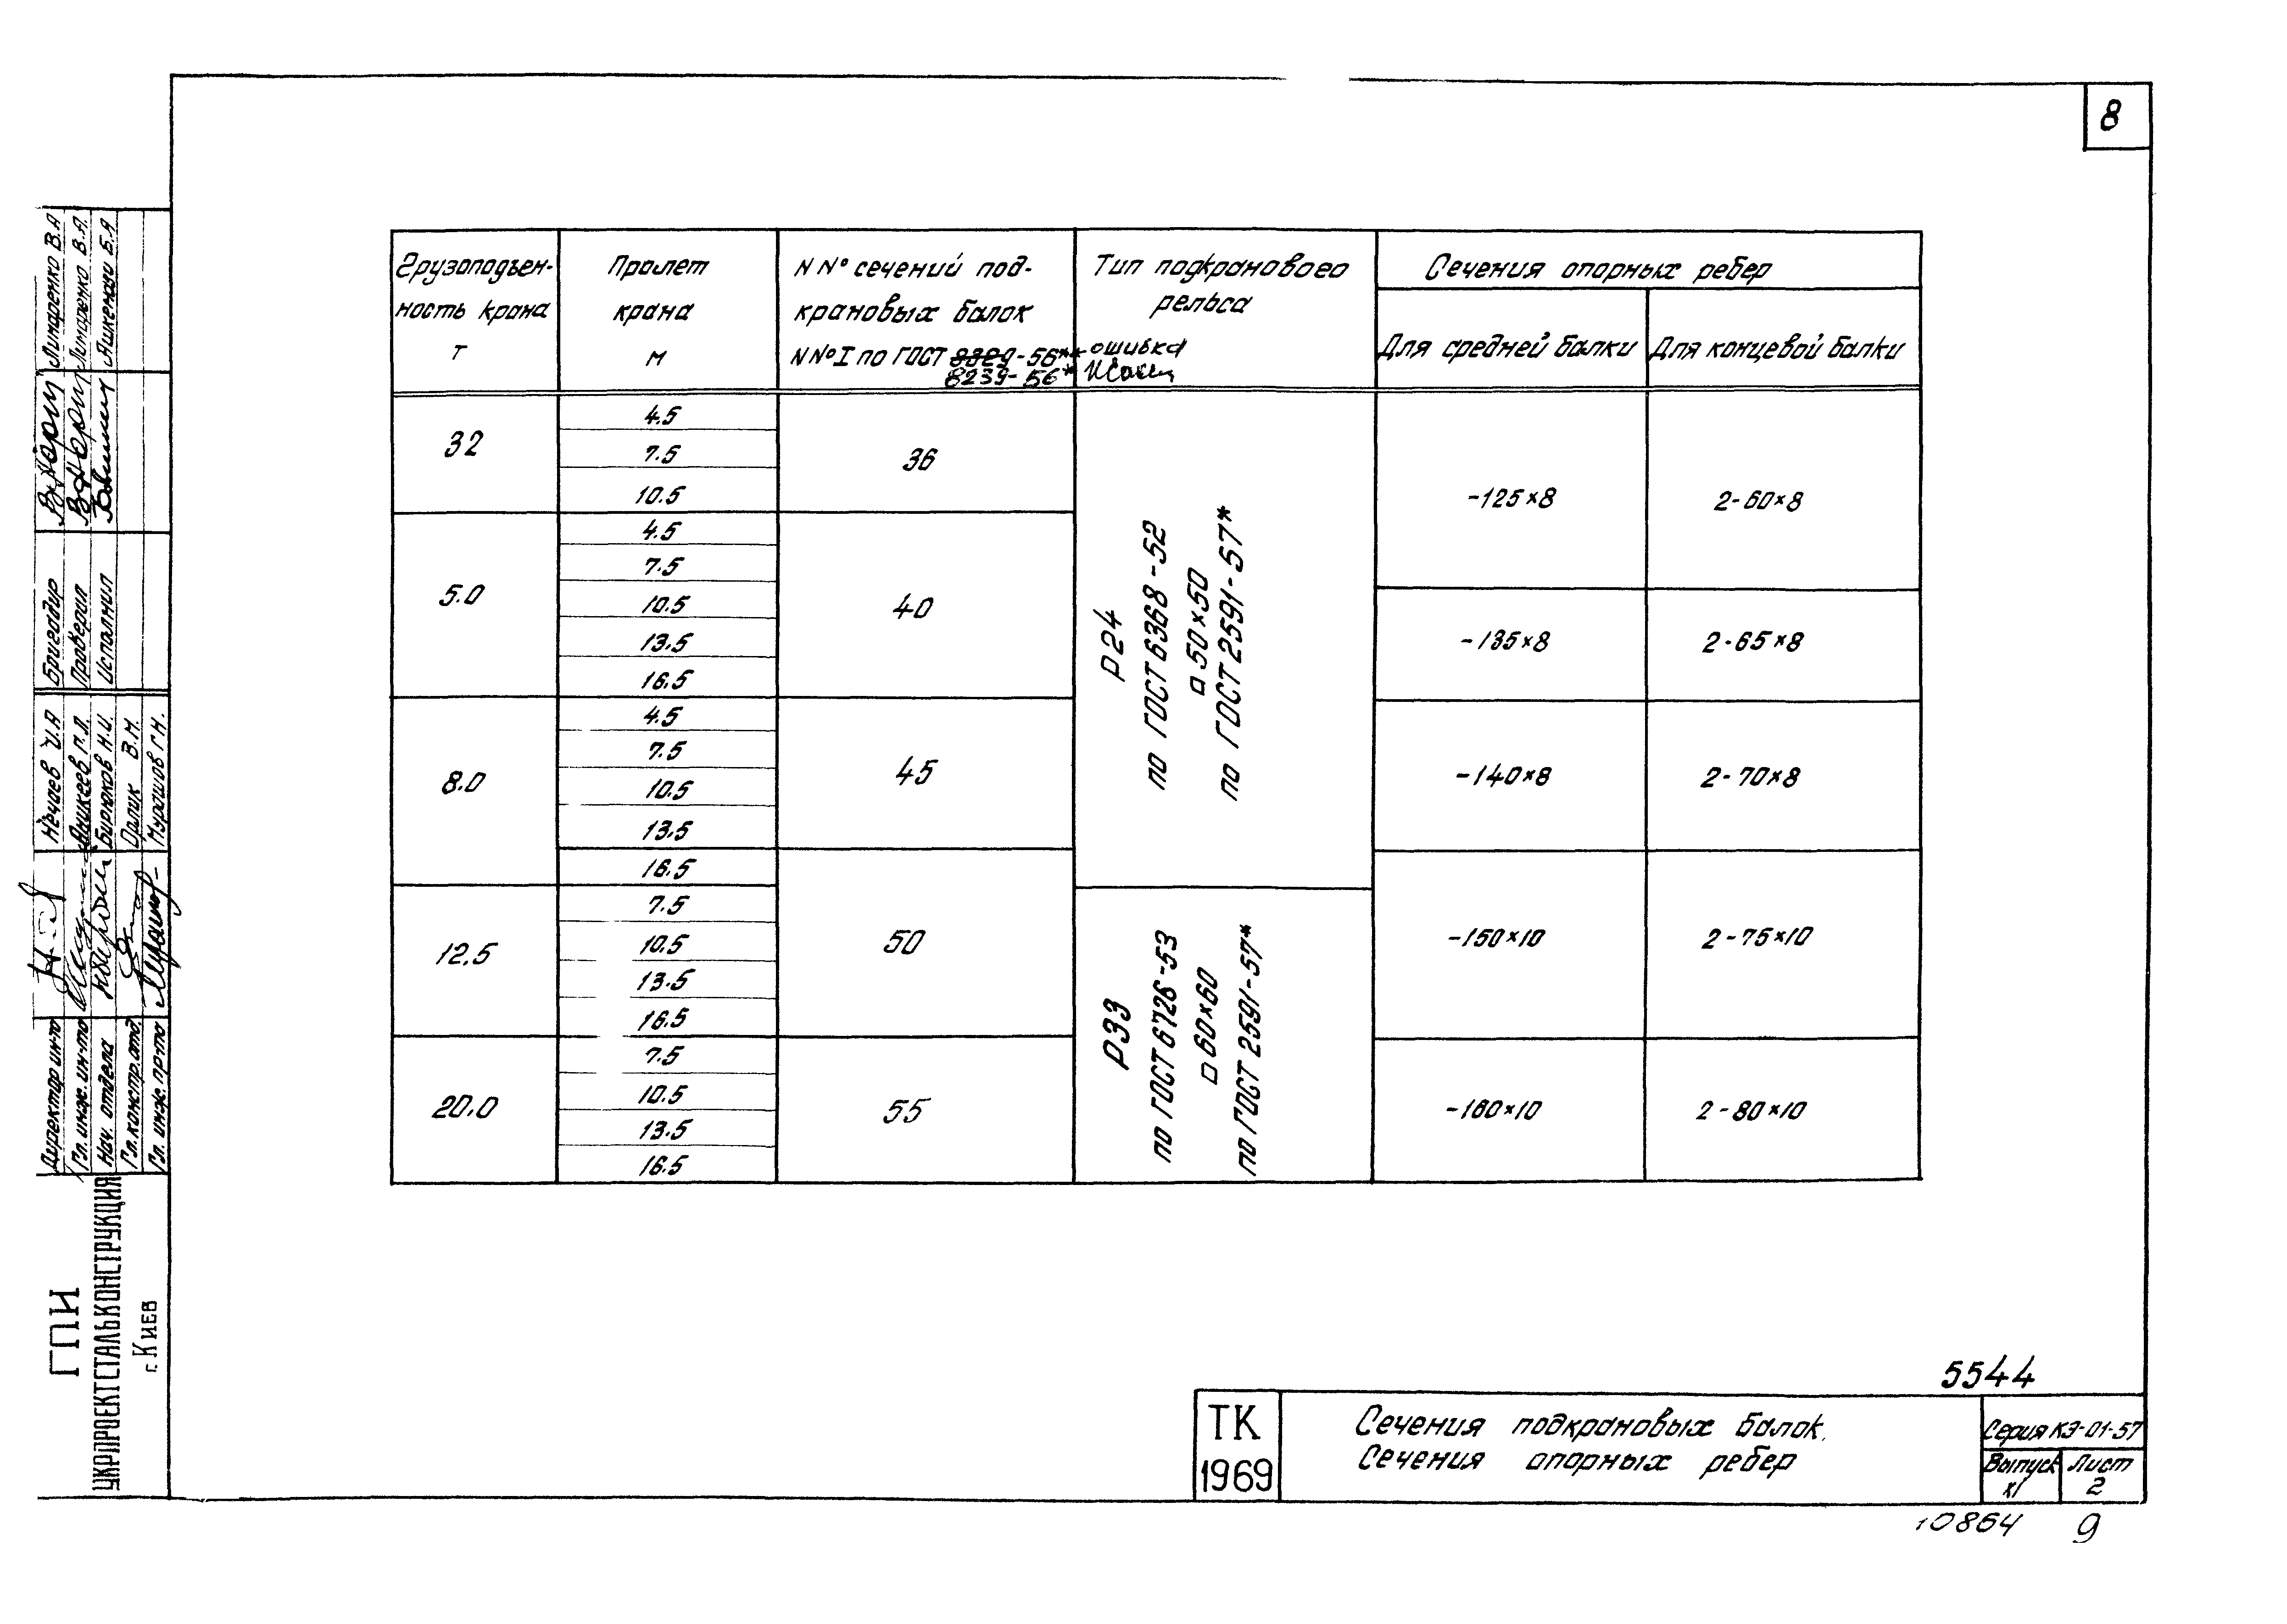 8
Грузоподъем-
ность крана
Т
Пролет
крана
м
N N° сечений под-
крановых балок
N N° I по ГОСТ 8389-56**
8239-56*
ошибка
Тип подкранового
рельса
Сечения опорных ребер
Для средней балки
Для концевой балки
32
4.5
7.5
10.5
36
5.0
4.5
7.5
10.5
13.5
16.5
40
8.0
4.5
7.5
10.5
13.5
16.5
45
12.5
7.5
10.5
13.5
16.5
50
20.0
7.5
10.5
13.5
16.5
55
Р24
по ГОСТ 6368-52
□ 50×50
по ГОСТ 2591-57*
Р33
по ГОСТ 6726-53
□ 60×60
по ГОСТ 2591-57*
-125×8
2-60×8
-135×8
2-65×8
-140×8
2-70×8
-150×10
2-75×10
-160×10
2-80×10
Бригадир Линаренко В.А
Проверил Линаренко В.А.
Исполнил Ашкенази Б.А
Директор ин-та Нечаев И.А
Гл. инж. ин-та Аникеев Г.Л.
Нач. отдела Бирюков Н.И.
Гл. констр. отд. Орлик В.М.
Гл. инж. пр-та Мурашов Г.Н.
ГПИ
УКРПРОЕКТСТАЛЬКОНСТРУКЦИЯ
г. Киев
5544
ТК
1969
Сечения подкрановых балок.
Сечения опорных ребер
Серия КЭ-01-57
Выпуск
XI
Лист
2
10864
9